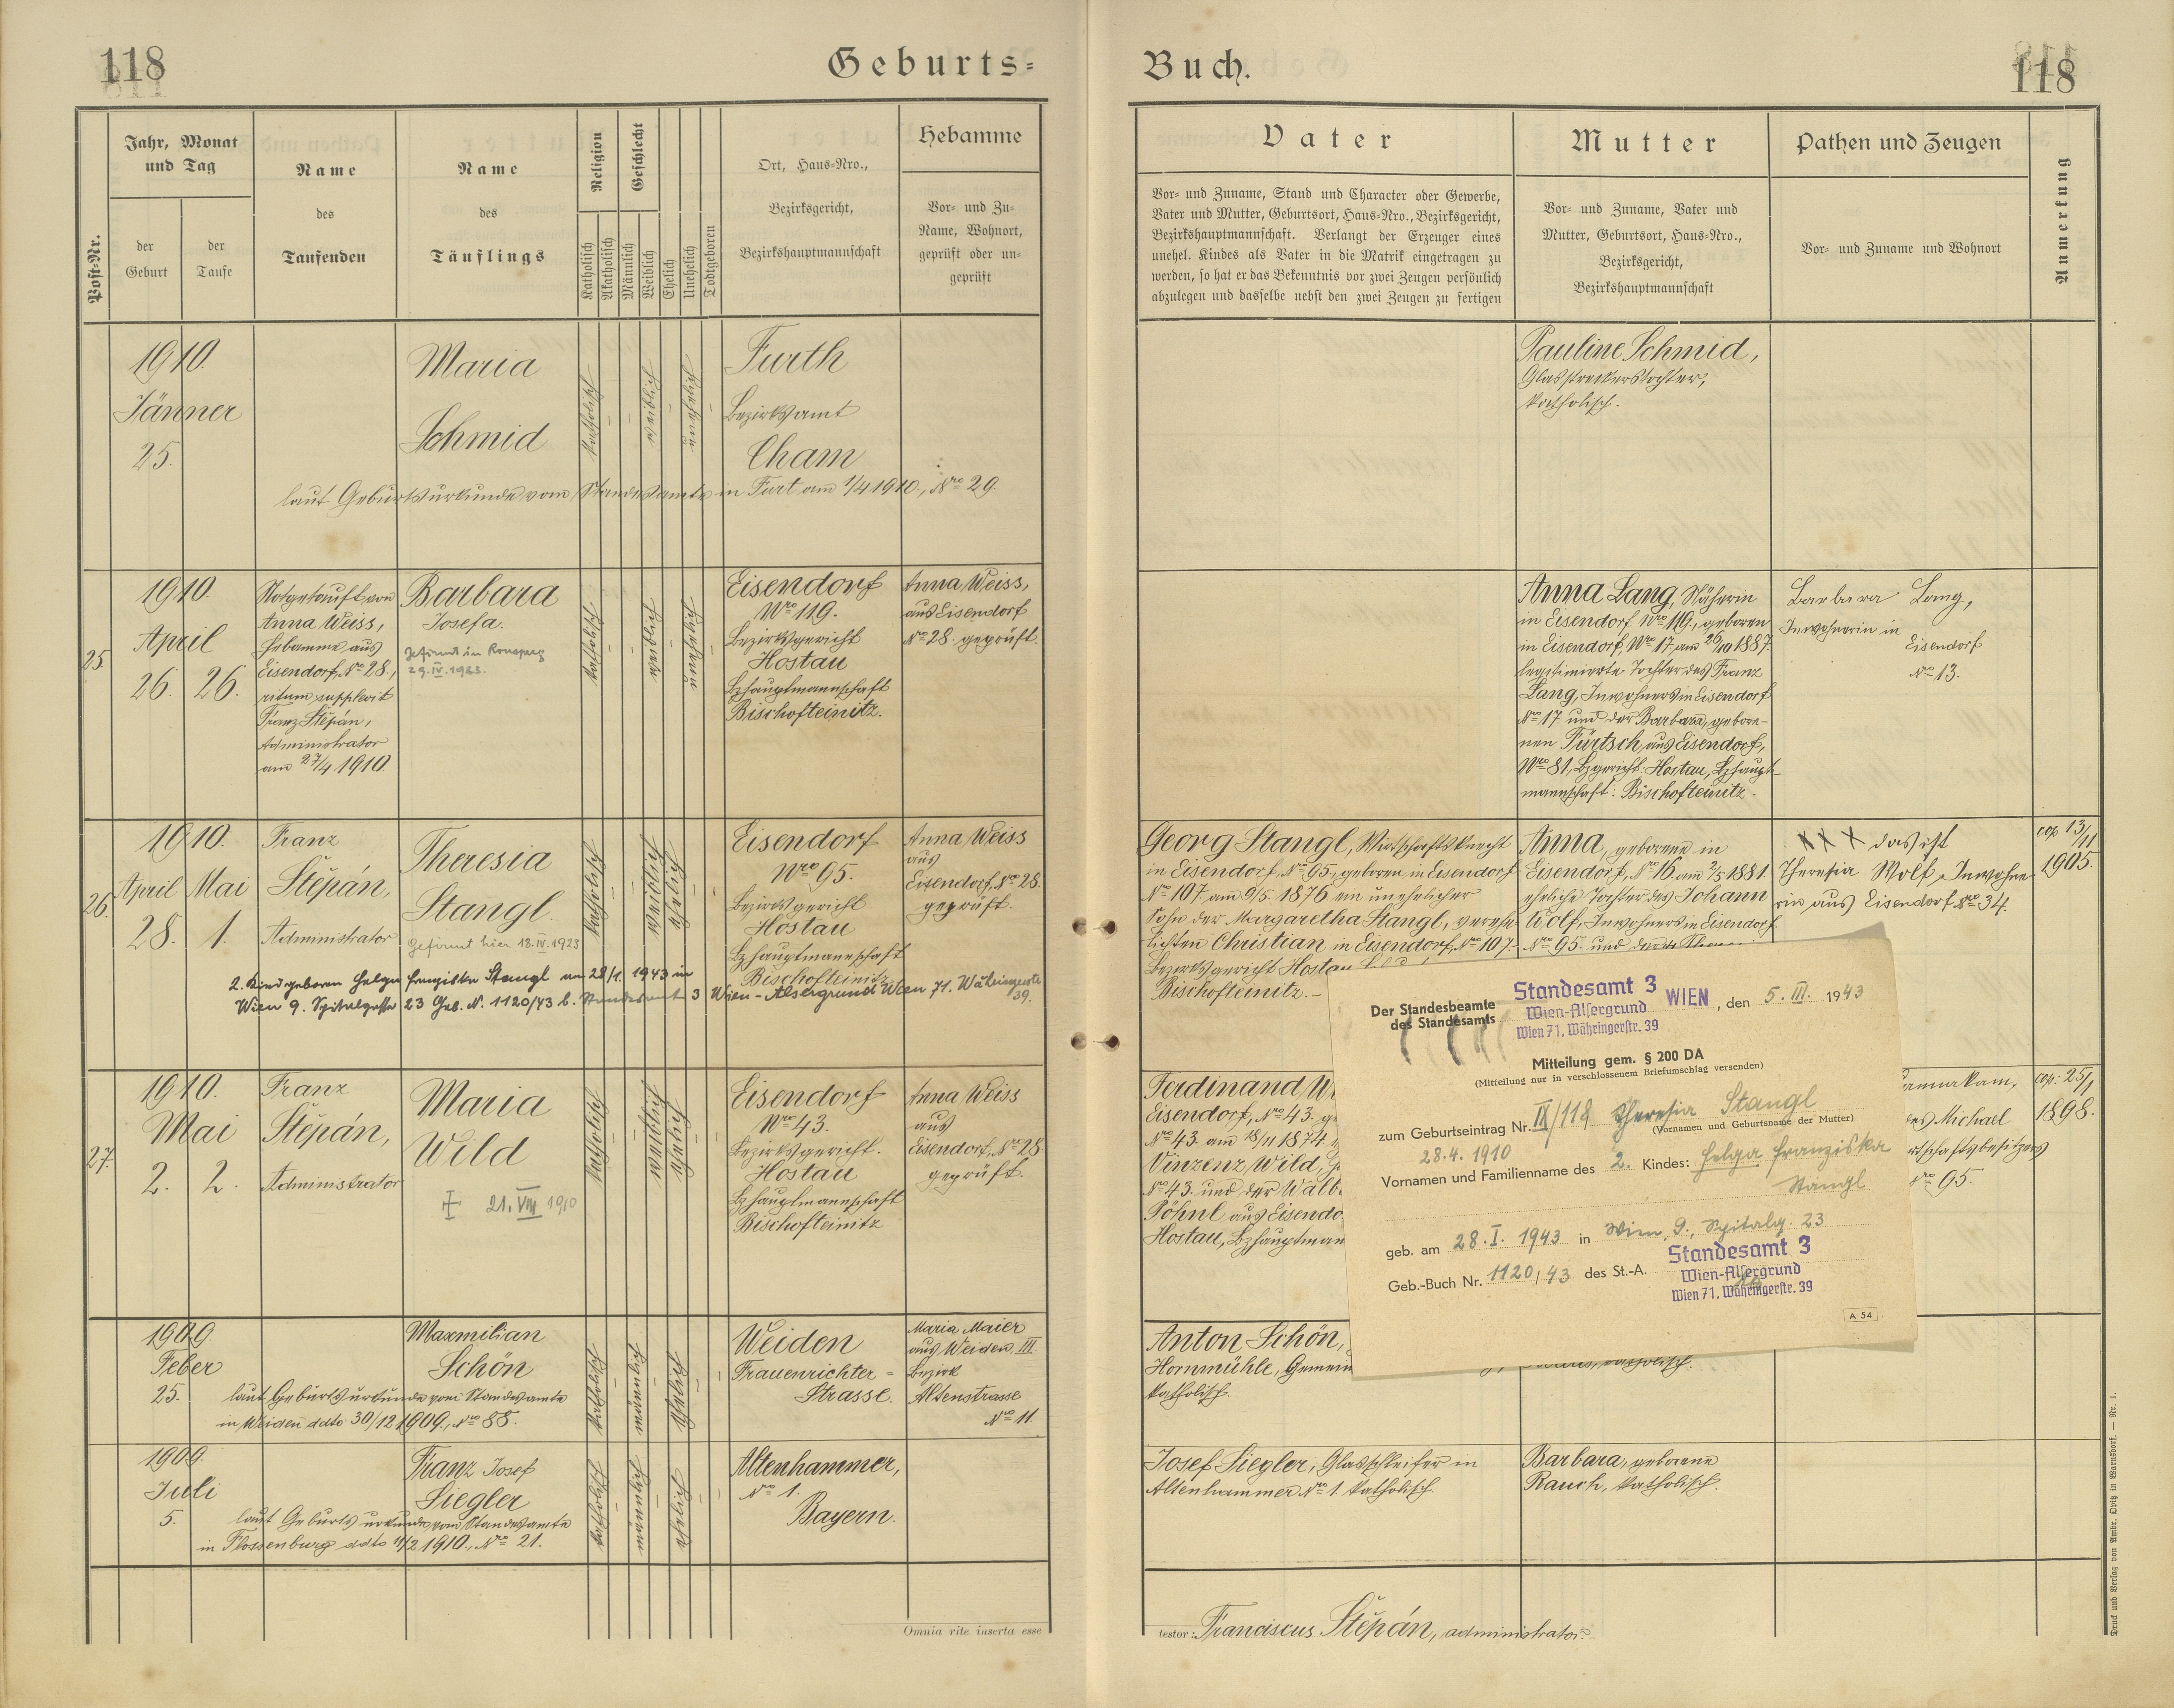 118
Geburts-
Post-Nr.
Jahr, Monat
und Tag
der
Geburt
der
Taufe
Name
des
Taufenden
Name
des
Täuflings
Religion
Katholisch
Akatholisch
Geschlecht
Männlich
Weiblich
Ehelich
Unehelich
Todtgeboren
Ort, Haus-Nro.,
Bezirksgericht,
Bezirkshauptmannschaft
Hebamme
Vor- und Zu-
Name, Wohnort,
geprüft oder un-
geprüft
1910.
Jänner
25.
Maria
Schmid
katholisch
weiblich
unehelich
Furth
Bezirksamt
Cham
laut Geburtsurkunde vom Standesamte in Furt am 1/4 1910., Nro 29.
25
1910.
April
26. 26.
Notgetauft von
Anna Weiss,
Hebamme aus
Eisendorf, Nro 28.,
ritum supplevit
Franz Štěpán,
Administrator
am 27/4 1910.
Barbara
Josefa.
gefirmt in Ronsperg
29.IV.1923.
katholisch
weiblich
unehelich
Eisendorf
Nro 119.
Bezirksgericht
Hostau
Bzhauptmannschaft
Bischofteinitz.
Anna Weiss,
aus Eisendorf
Nro 28. geprüft.
26.
1910.
April Mai
28. 1.
Franz
Štěpán,
Administrator
Theresia
Stangl.
Gefirmt hier 18.IV.1923
katholisch
weiblich
ehelich
Eisendorf
Nro 95.
Bezirksgericht
Hostau
Bzhauptmannschaft
Bischofteinitz
Anna Weiss
aus
Eisendorf, Nro 28.
geprüft.
2. Kind geboren Helga Franziska Stangl am 28/1. 1943 in
Wien 9. Spitalgasse 23 Geb. N. 1120/43 b. Standesamt 3 Wien-Alsergrund Wien 71. Währingerstr.
39.
27.
1910.
Mai
2. 2.
Franz
Štěpán,
Administrator
Maria
Wild
21.VIII 1910
katholisch
weiblich
ehelich
Eisendorf
Nro 43.
Bezirksgericht.
Hostau
Bzhauptmannschaft
Bischofteinitz
Anna Weiss
aus
Eisendorf, Nro 28
geprüft.
1909.
Feber
25.
Maxmilian
Schön
laut Geburtsurkunde vom Standesamte
in Weiden ddto 30/12 1909., Nro 88.
katholisch
männlich
ehelich
Weiden
Frauenrichter-
Strasse.
Maria Maier
aus Weiden, III
Bezirk
Altenstrasse
Nro 11.
1909.
Juli
5.
Franz Josef
Siegler
laut Geburtsurkunde vom Standesamte
in Flossenburg ddto 11/2 1910., Nro 21.
katholisch
männlich
ehelich
Altenhammer,
Nro 1.
Bayern.
Omnia rite inserta esse
Buch.
118
Vater
Vor- und Zuname, Stand und Character oder Gewerbe,
Vater und Mutter, Geburtsort, Haus-Nro., Bezirksgericht,
Bezirkshauptmannschaft. Verlangt der Erzeuger eines
unehel. Kindes als Vater in die Matrik eingetragen zu
werden, so hat er das Bekenntnis vor zwei Zeugen persönlich
abzulegen und dasselbe nebst den zwei Zeugen zu fertigen
Mutter
Vor- und Zuname, Vater und
Mutter, Geburtsort, Haus-Nro.,
Bezirksgericht,
Bezirkshauptmannschaft
Pathen und Zeugen
Vor- und Zuname und Wohnort
Anmerkung
Pauline Schmid,
Glasstreckerstochter,
katholisch.
Anna Lang, Näherin
in Eisendorf Nro 119., geboren
in Eisendorf, Nro 17. am 26/10 1887.
legitimierte Tochter des Franz
Lang, Inwohners in Eisendorf
Nro 17 und der Barbara, gebore-
nen Türtsch, aus Eisendorf,
Nro 81, Bzgericht: Hostau, Bzhaupt-
mannschaft: Bischofteinitz.
Barbara Lang,
Inwohnerin in
Eisendorf
Nro 13.
Georg Stangl, Wirtschaftsknecht
in Eisendorf, Nro 95., geboren in Eisendorf
Nro 107. am 9/5. 1876 ein unehelicher
Sohn der Margaretha Stangl, verehe-
lichten Christian in Eisendorf, Nro 107.
Bezirksgericht Hostau
Bischofteinitz.
Anna, geborene in
Eisendorf, Nro 16. am 2/5 1881.
eheliche Tochter des Johann
Wolf, Inwohners in Eisendorf
Nro 95. und der
XXX das ist
Theresia Wolf, Inwohne-
rin aus Eisendorf Nro 34.
cop 13/11
1905.
Ferdinand W
Eisendorf, Nro 43. ge
Nro 43. am 18/11 1874
Vinzenz Wild,
Nro 43. und der Walb
Pöhnl aus Eisendo
Hostau, Bzhauptman
des Michael
rtschaftsbesitzers
Nro 95.
cop. 25/1
1898.
Der Standesbeamte
des Standesamts
Standesamt 3
Wien-Alsergrund
Wien 71, Währingerstr. 39
WIEN, den 5. III. 1943
Mitteilung gem. § 200 DA
(Mitteilung nur in verschlossenem Briefumschlag versenden)
zum Geburtseintrag Nr. IX/118 Theresia Stangl
(Vornamen und Geburtsname der Mutter)
28.4. 1910
Vornamen und Familienname des 2. Kindes: Helga Franziska
Stangl
geb. am 28.I. 1943 in Wien, 9., Spitalg. 23
Geb.-Buch Nr. 1120/43 des St.-A.
Standesamt 3
Wien-Alsergrund
Wien 71, Währingerstr. 39
A 54
Anton Schön,
Hornmühle, Gemein
katholisch.
katholisch.
Josef Siegler, Glasschleifer in
Altenhammer Nro 1. katholisch.
Barbara, geborene
Rauch, katholisch.
testor: Franciscus Štěpán, administrator.
Druck und Verlag von Ambr. Opitz in Warnsdorf. — Nr. 1.